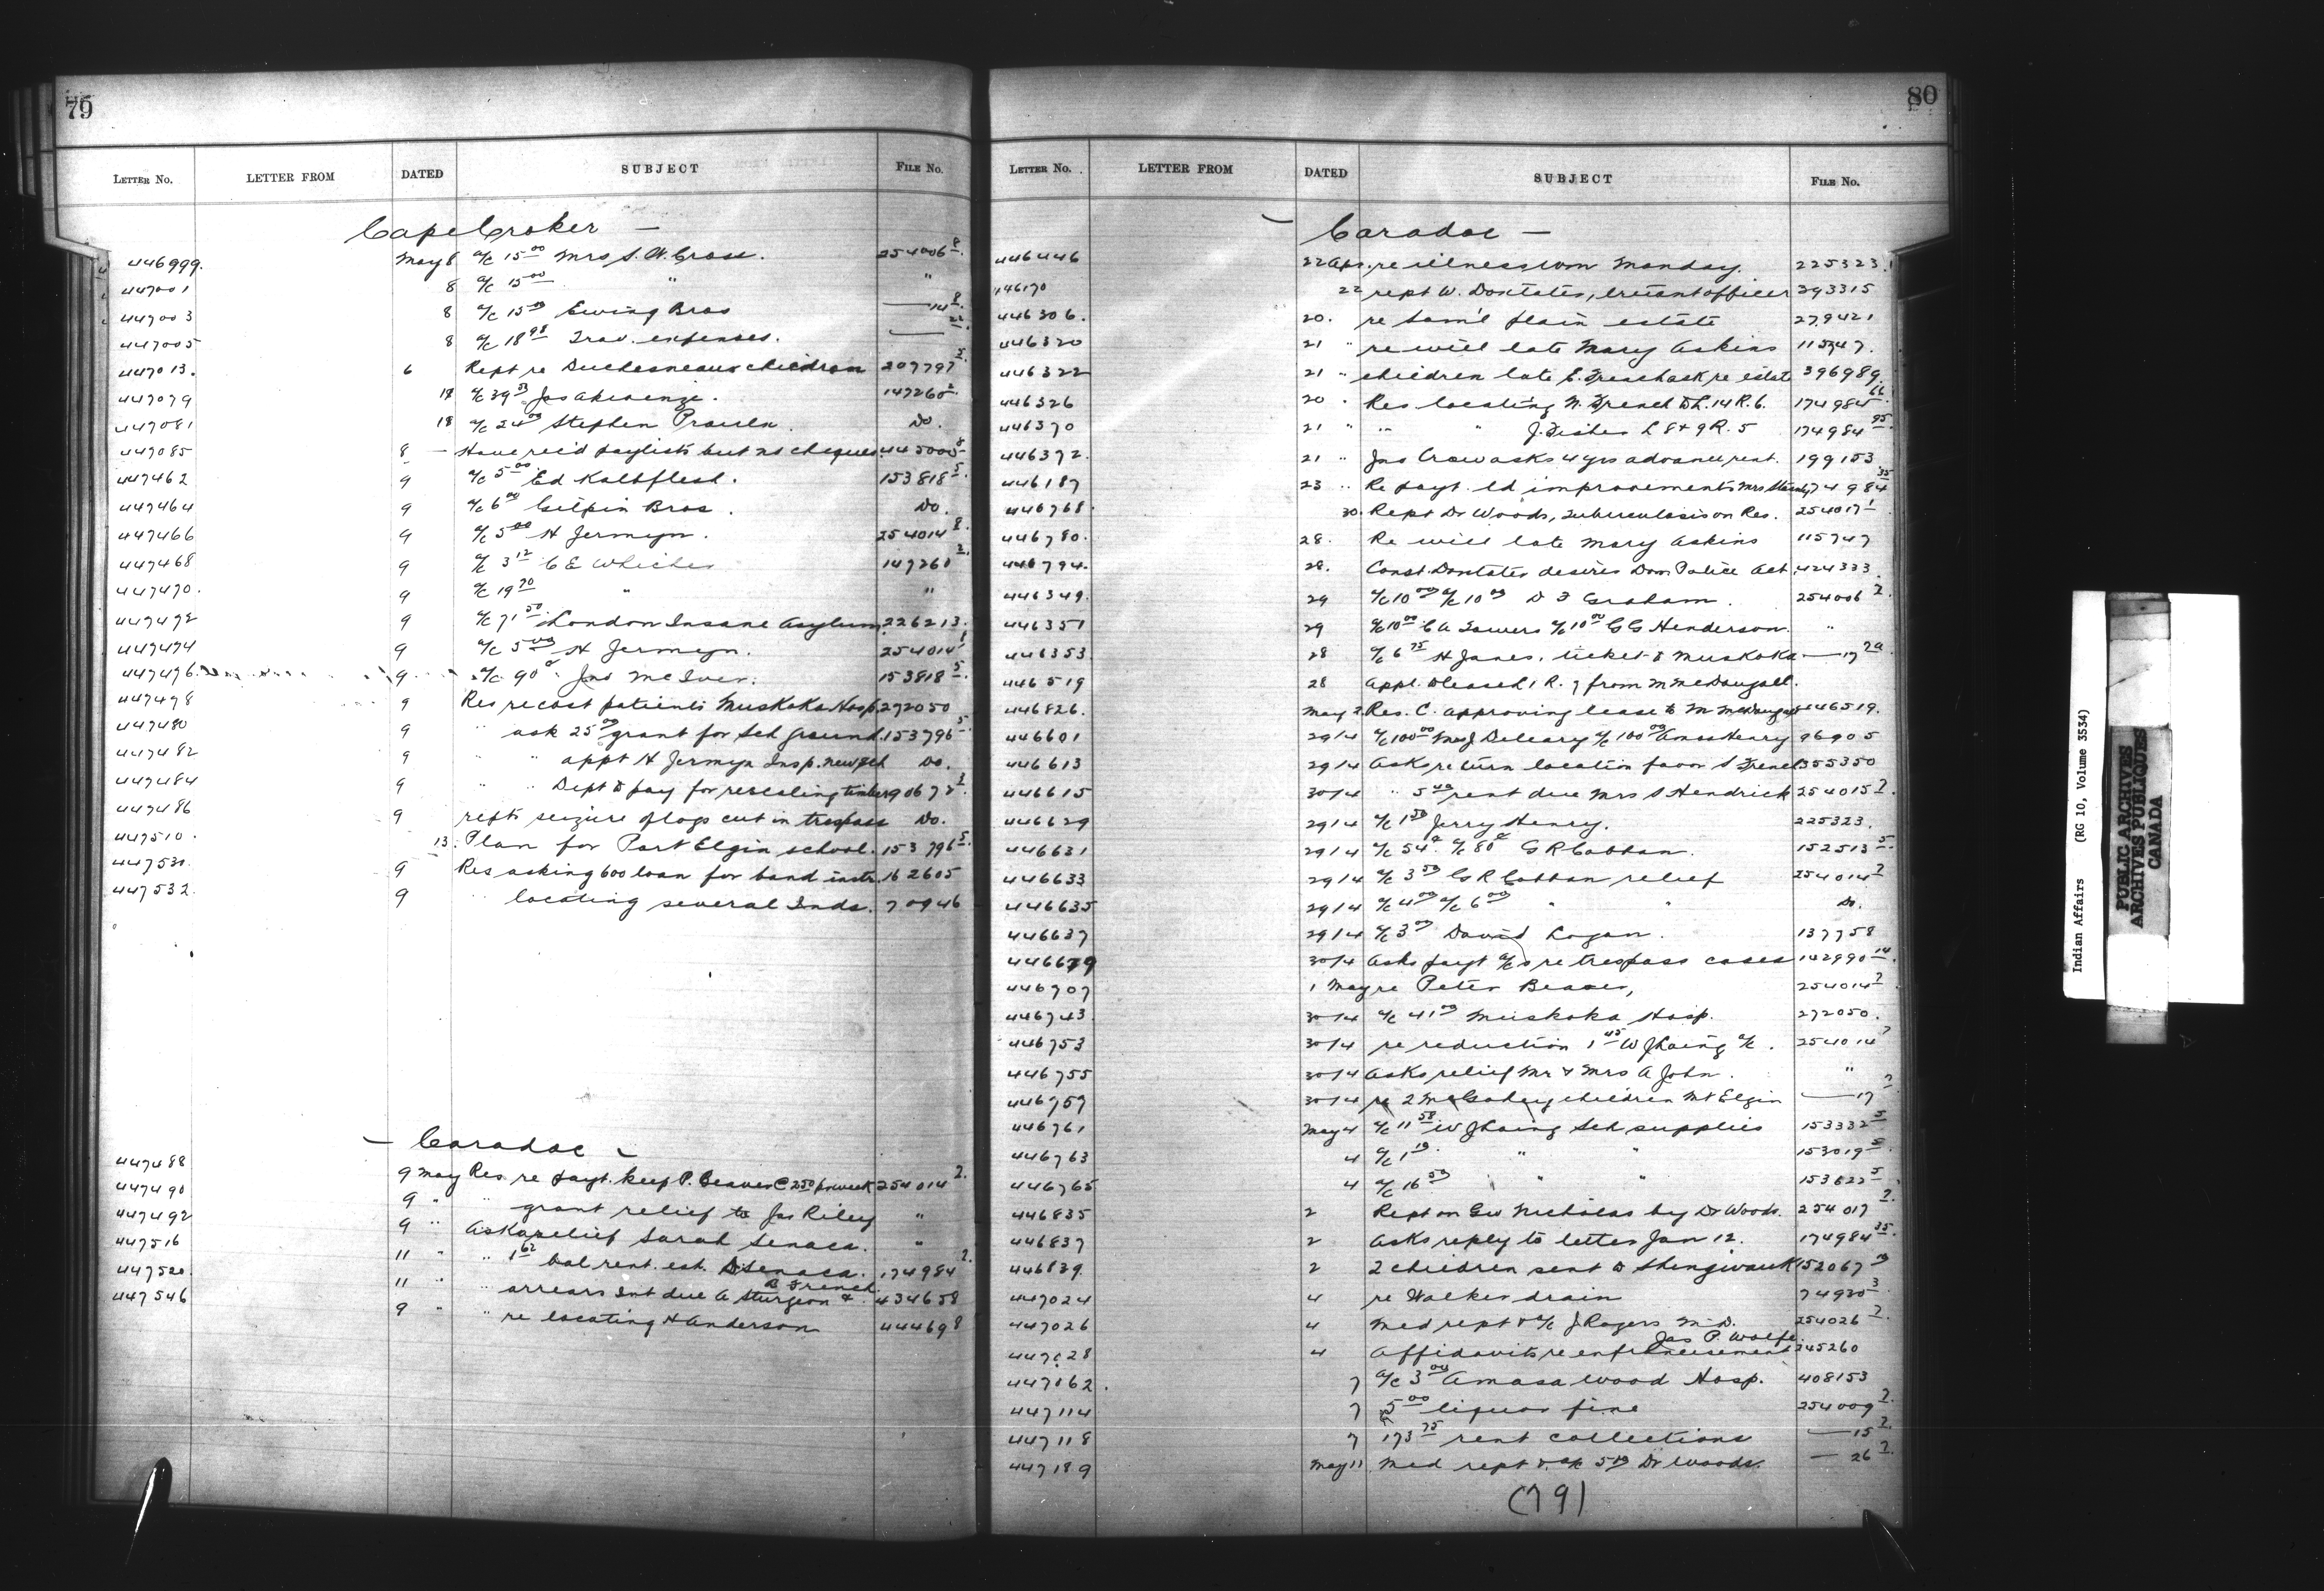 79
LETTER NO. LETTER FROM DATED SUBJECT FILE NO.
Cape Croker —
446999. May 8 a/c 15 00 Mrs S. A. Cross. 254006 8
447001 8 a/c 15 00 " "
447003 8 a/c 15 00 Ewing Bros — 14 8
447005 8 a/c 18 98 Trav. expenses. — 22
447013. 6 Rept re Duchesneaus children 207797 5
447079 18 a/c 39 33 Jas Akiwenzie. 147260 2
447081 18 a/c 24 00 Stephen 	Do.
447085 8 — Have rec'd paylists but no cheques 445000 8
447462 9 a/c 5 00 Ed Kalbflesh. 153818 5
447464 9 a/c 6 00 Gilpin Bros. Do.
447466 9 a/c 5 00 H Jermyn. 254014 8
447468 9 a/c 3 12 C E Whicher 147260 2
447470. 9 a/c 19 70 " "
447472 9 a/c 71 50 London Insane Asylum 226213.
447474 9 a/c 5 00 H Jermyn. 254014 8
447476. 9 a/c 90 c Jno McIver. 153818 5
447478 9 Res re cost patients Muskoka Hosp. 272050
447480 9 " ask 25 00 grant for Sch ground. 153796 5
447482 9 " " appt H Jermyn Insp. new sch Do.
447484 9 " " Dept to pay for rescaling timber 190672 2
447486 9 repts seizure of logs cut in trespass Do.
447510. 13. Plan for Port Elgin school. 153796 5
447530. 9 Res asking 600 loan for band instr. 162605
447532. 9 " locating several Inds. 70946
— Caradoc —
447488 9 May Res. re payt. keep P. Beaver @ 2 50 pr week 254014 2
447490 9 " " grant relief to Jas Riley "
447492 9 " Asks relief Sarah Seneca. "
447516 11 " " 1 62 bal rent. est. Seneca. 174984 2
447520. 11 " " arrears Int due A Sturgeon & B French 434658
447546 9 " " re locating H Anderson 444698
80
LETTER NO. LETTER FROM DATED SUBJECT FILE NO.
— Caradoc —
446446 22 Apr. re illness Wm Monday. 225323.
446170 22 rept W. Doxtater, truant officer 393315
446306. 20. re Sam'l Plain estate 279421
446320 21 " re will late Mary Askins 115747.
446322 21 " children late E. re estate 396989
446326 20 . Res locating N. French to L. 14 R. 6. 174984 66
446370 21 " " " J. Fisher L 8 & 9 R. 5 174984 95
446372. 21 " Jno Crow asks 4 yrs advance rent. 199153
446187 23 " Re payt. ld improvements Mrs 174984 35
446768. 30. Rept Dr Woods, tuberculosis on Res. 254017 1
446780. 28. Re will late Mary Askins 115747
446794. 28. Const. Doxtater desires Dom Police Act 424333.
446349. 29 a/c 10 00 a/c 10 00 D F Graham. 254006 2
446351 29 a/c 10 00 C A Sowers a/c 10 00 G G Henderson. "
446353 28 a/c 6 75 H Janes. ticket to Muskoka — 17 2a
446519 28 Appl. to lease L 1 R. 7 from M McDougall.
446826. May 2 Res. C. approving lease to M McDougall 446519.
446601 29/4 a/c 100 00 Mrs J Deleary a/c 100 00 Amos Henry 96905
446613 29/4 Asks return location favor S French 355350
446615 30/4 " 5 00 rent due Mrs S Hendrick 254015 2.
446629 29/4 a/c 1 50 Jerry Henry. 225323.
446631 29/4 a/c 54 c a/c 80 c G R Cobban. 152513 5
446633 29/4 a/c 3 50 G R Cobban relief 254014 2
446635 29/4 a/c 4 00 a/c 6 00 " " Do.
446637 29/4 a/c 3 00 David Logan. 137758
446679 30/4 Asks payt a/cs re trespass cases 142990 14.
446707 1 May re Peter Beaver, 254014 2
446743. 30/4 a/c 41 00 Muskoka Hosp. 272050.
446753 30/4 re reduction 1 45 W J Laing a/c. 254014 2
446755 30/4 Asks relief Mr & Mrs A John. "
446759 30/4 re 2 children Mt Elgin — 17 2
446761 May 4 a/c 11 58 W J Laing Sch supplies 153332 5
446763 4 a/c 1 19 " " 153019 5
446765 4 a/c 16 53 " " 153622 5
446835 2 Rept on Geo Nicholas by Dr Woods. 254017 2.
446837 2 Asks reply to letter Jan 12. 174984 35.
446839. 2 2 children sent to Shingwauk 152067
447024 4 re Walker drain 74920 3
447026 4 Med rept & a/c J Rogers M. D. 254026 2.
447028 4 Affidavits re enfranchisement Jas P. Wolfe. 245260
447062. 7 a/c 3 00 Amasa Wood Hosp. 408153
447114 7 5 00 liquor fine 254009 2.
447118 7 173 75 rent collections — 15 2.
447189 May 11 Med rept & a/c 5 00 Dr Woods. — 26 2.
(79)
Indian Affairs (RG 10, Volume 3534)
PUBLIC ARCHIVES
ARCHIVES PUBLIQUES
CANADA